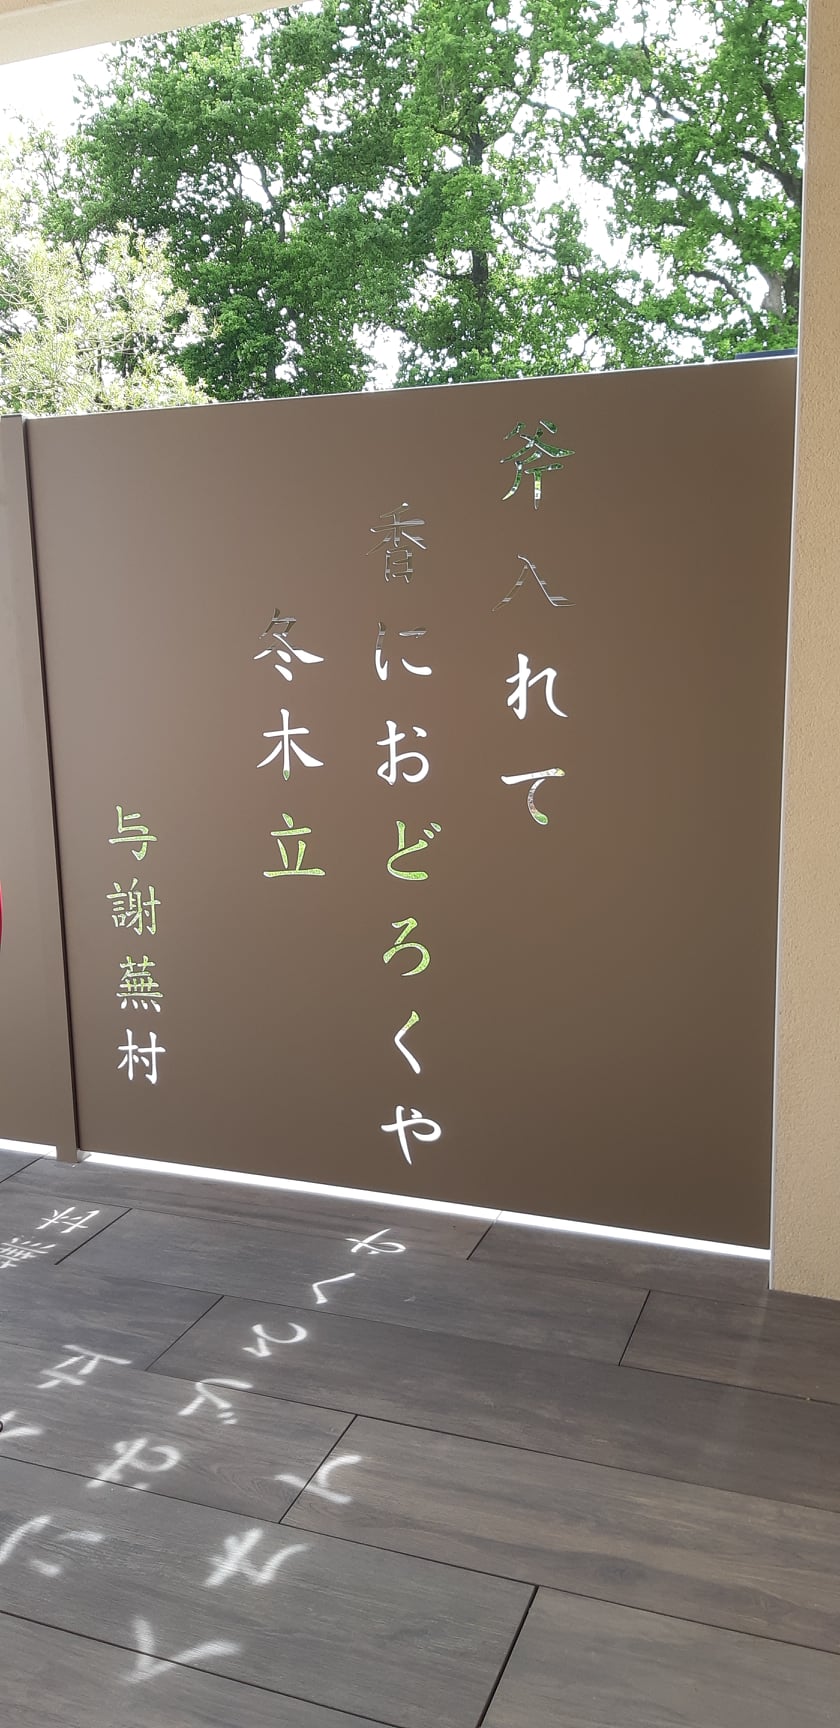 斧入れて
香におどろくや
冬木立
与謝蕪村